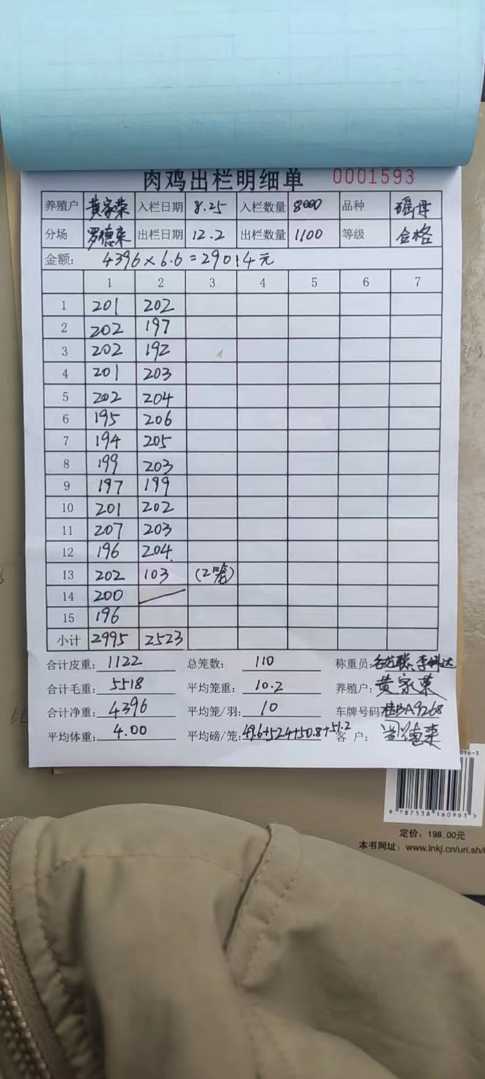 肉鸡出栏明细单 0001593
养殖户 黄家荣 入栏日期 8.25 入栏数量 8000 品种 瑶母
分场 罗德荣 出栏日期 12.2 出栏数量 1100 等级 合格
金额: 4396×6.6=29014元
1 2 3 4 5 6 7
1 201 202
2 202 197
3 202 192
4 201 203
5 202 204
6 195 206
7 194 205
8 199 203
9 197 199
10 201 202
11 207 203
12 196 204
13 202 103 (2笼)
14 200
15 196
小计 2995 2523
合计皮重: 1122 总笼数: 110 称重员:
合计毛重: 5518 平均笼重: 10.2 养殖户: 黄家荣
合计净重: 4396 平均笼/羽: 10 车牌号码: 桂BA9268
平均体重: 4.00 平均磅/笼: 49.6+52.4+50.8+51.2 客户:
定价: 198.00元
本书网址: www.lnkj.cn/uri.sh/